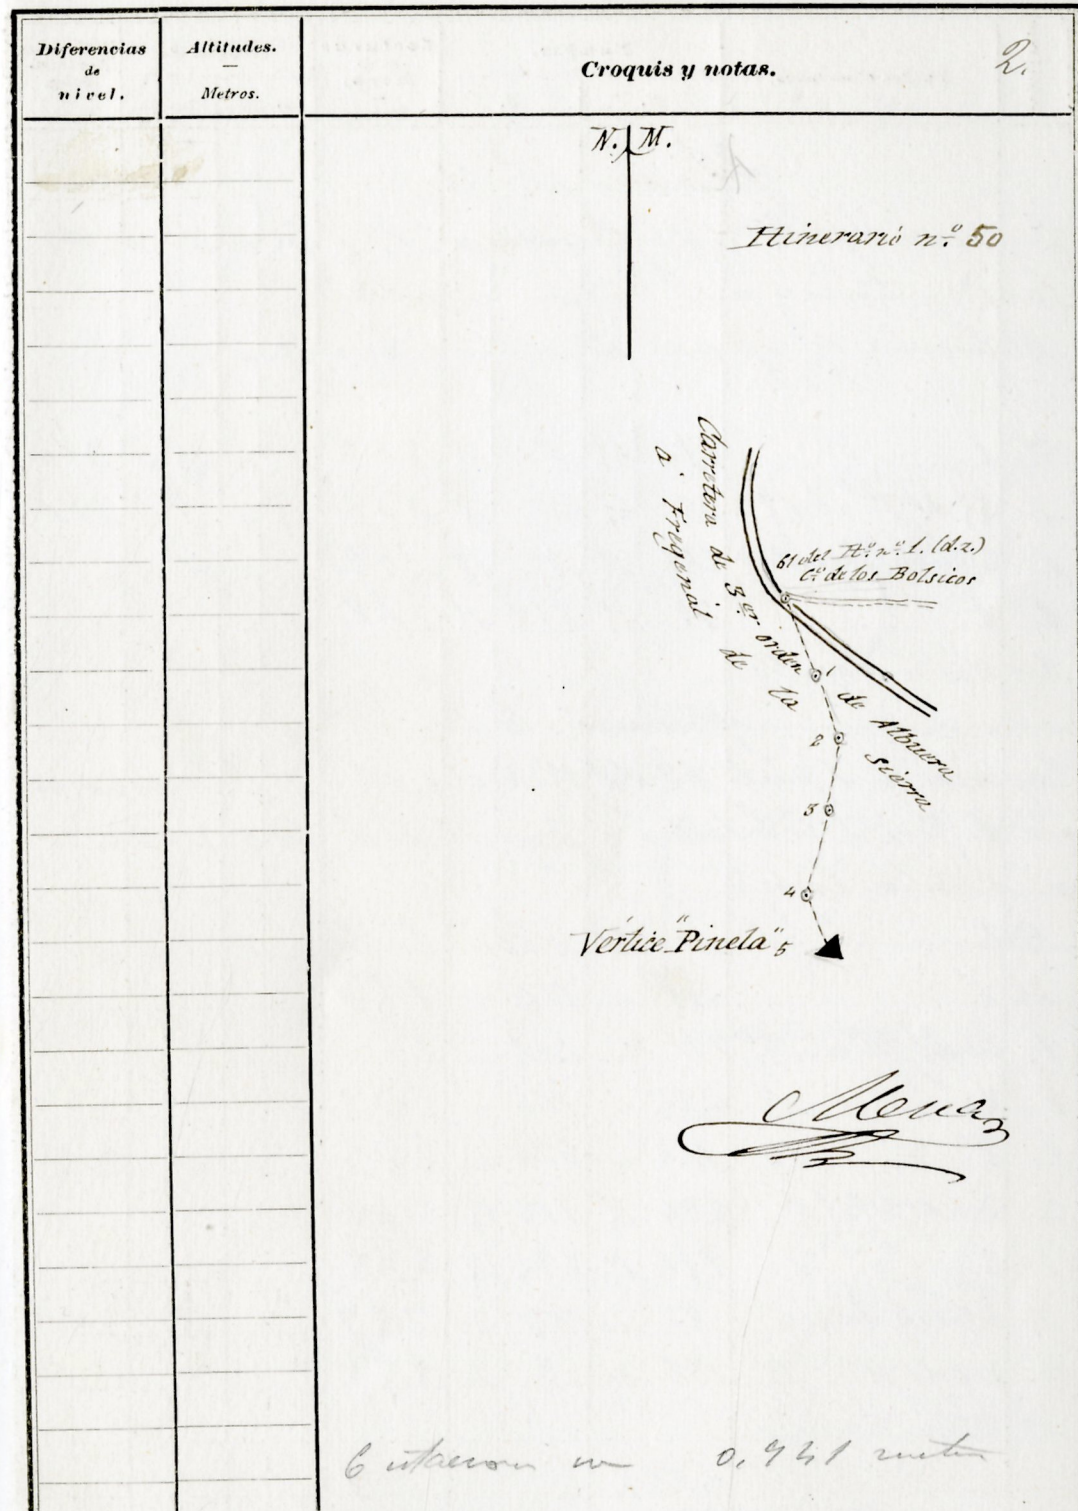 Diferencias
de
nivel.
Altitudes.
Metros.
Croquis y notas.
2.
N. M.
Itinerario nº 50
Carretera de 3er orden de Albuera
á Fregenal de la Sierra
61 del Itº nº 1. (d.z.)
Cº de los Bolsicos
1
2
3
4
Vértice "Pineta" 5
6 0,941